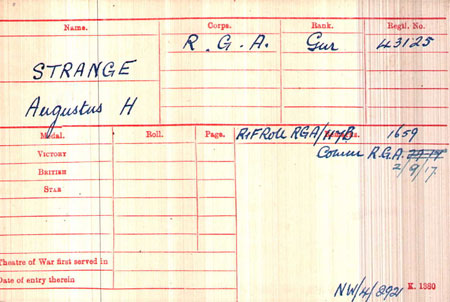 Name. Corps. Rank. Regtl. No.
R. G. A. Gnr 43125
STRANGE
Augustus H
Medal. Roll. Page. Remarks. 1659
R.F Roll RGA/
VICTORY
Comm R.G.A.
BRITISH 2/9/17.
STAR
Theatre of War first served in
Date of entry therein
NW/4/8921 K. 1380